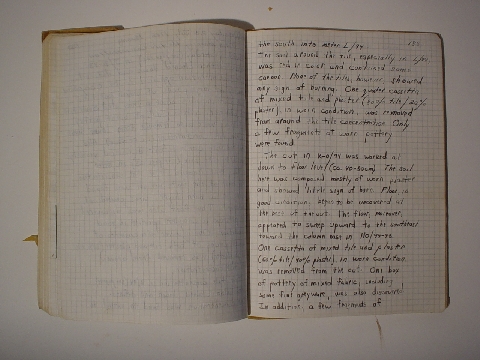 the south into meter L/94.
The soil around the tile, especially in L/94
was dark and contained some
carbon. None of the tiles, however, showed
any sign of burning. One quarter cassetta
of mixed tile and plaster (80% tile/20%
plaster), in worn condition, was removed
from around the tile concentration. Only
a few fragments of worn pottery
were found.
The cut in K-O/94 was worked all
down to floor level (ca. 70-80cm). The soil
here was composed mostly of worn plaster
and showed little sign of burn. Floor, in
good condition, began to be uncovered at
the east of the cut. This floor, moreover,
appeared to sweep upward to the
toward the column base in
One cassetta of mixed tile and plaster
(60% tile/40% plaster), in worn condition
was removed from the cut. One box
of pottery of mixed fabric, including
some fine greyware, was also discovered.
In addition, a few fragments of